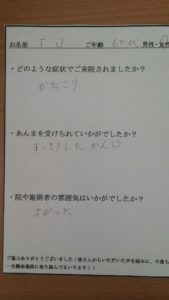 お名前 T J ご年齢 60代 男性・女性
・どのような症状でご来院されましたか？
かたこり
・あんまを受けられていかがでしたか？
すっきりした かんじ
・院や施術者の雰囲気はいかがでしたか？
よかった
ご協力ありがとうございました！皆さんからいただいた声を励みに、今後も
一生懸命施術に取り組んでまいります！！